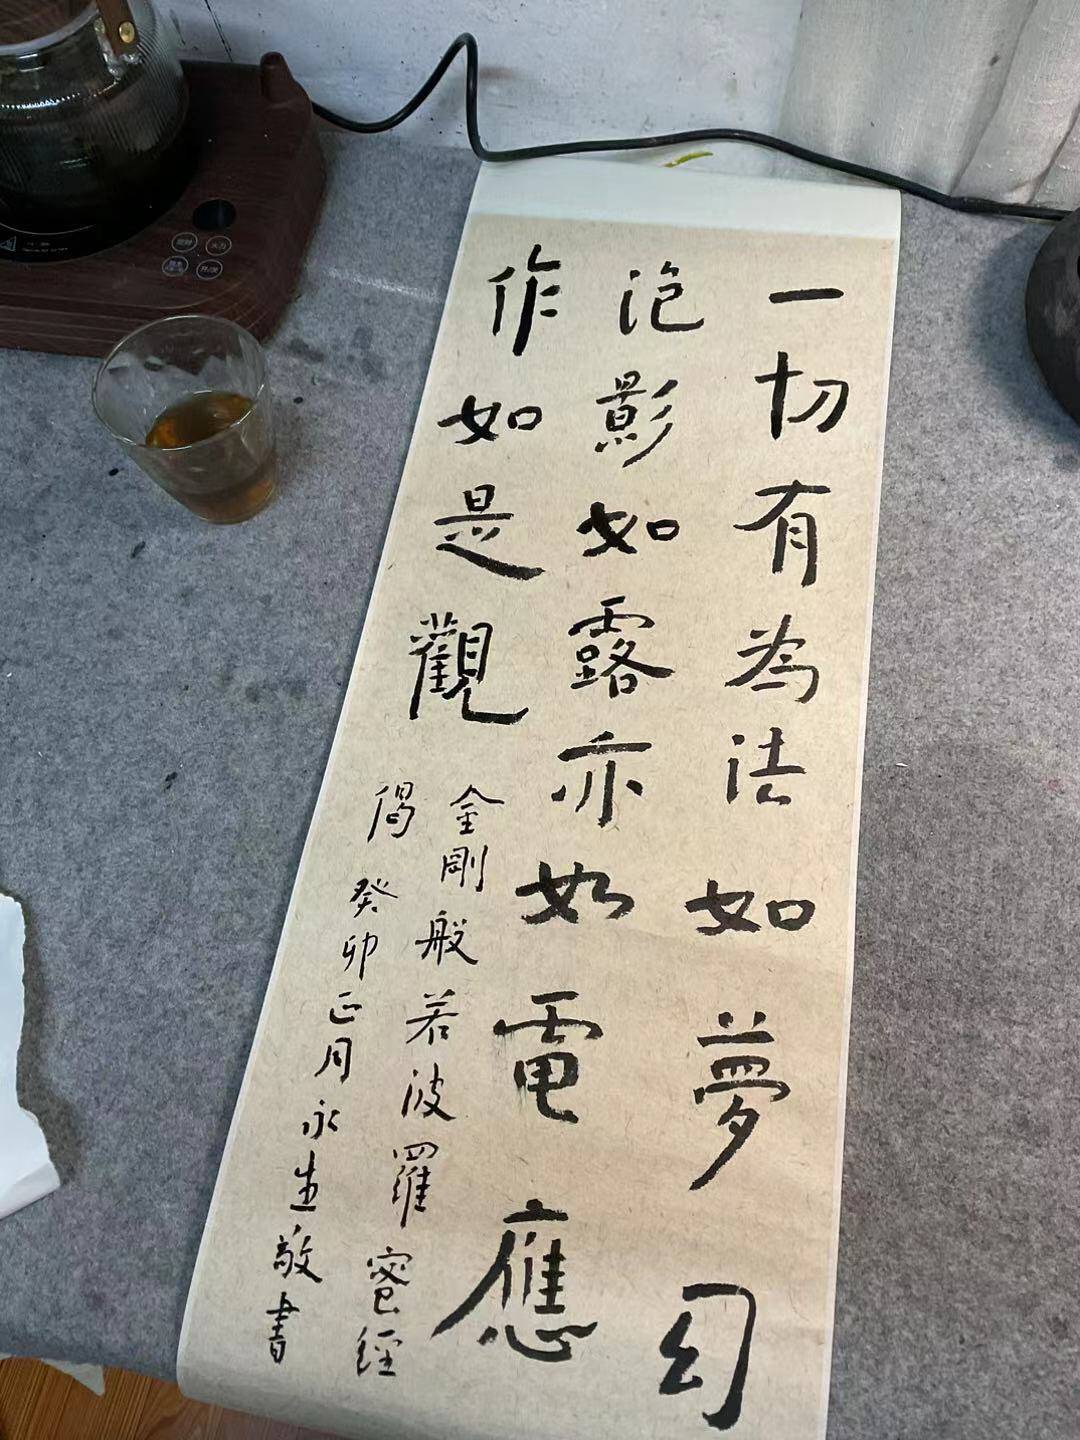 一切有為法如夢幻
泡影如露亦如電應
作如是觀
金剛般若波羅蜜經
偈 癸卯正月永生敬書